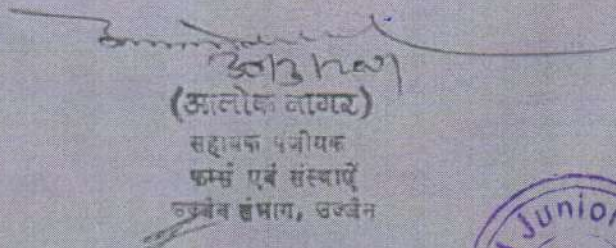 (आलोक नागर)
सहायक पंजीयक
फर्म्स एवं संस्थाऐं
उज्जैन संभाग, उज्जैन
Junior